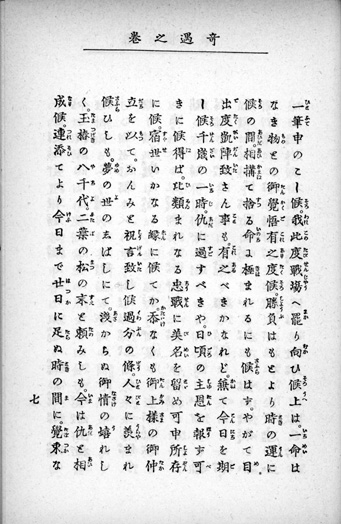 奇遇之卷
一筆申のこし候我此度戰塲へ罷り向ひ候上は。一命は
なき物との御覺悟有之度候。勝負はもとより時の運に
候の間。相構て捨る命に極まれるにも候はす。やがて目
出度凱陣致さん事も有之べきかなれど。兼て今日を期
し候千歲の一時仇に過すべきや。日頃の主恩を報す可
きに候得ば。比類まれなる忠戰に英名を留め可申所存
に候。宿世いかなる緣に候てか忝なくも御上樣の御仲
立を以て。おんみと祝言致し候過分の條。人々に羨まれ
候ひしも。夢の世のえばしにて淺からぬ御情の嬉し
く。玉椿の八千代二葉の松の末と賴みしも。今は仇と相
成候。連添てより今日まで廿日に足ぬ時の間に。覺束な
七